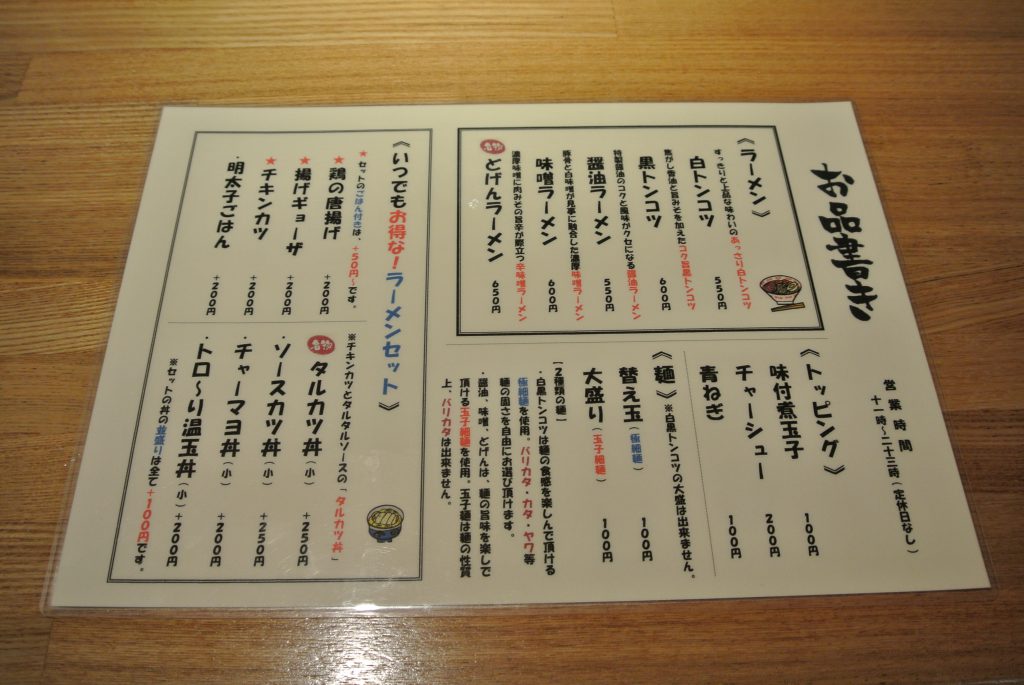 お品書き
営業時間
十一時～二十三時(定休日なし)
《ラーメン》
すっきりと上品な味わいのあっさり白トンコツ
白トンコツ 550円
焦がし香油と旨みそを加えたコク旨黒トンコツ
黒トンコツ 600円
特製醤油のコクと風味がクセになる醤油ラーメン
醤油ラーメン 550円
豚骨と白味噌が見事に融合した濃厚味噌ラーメン
味噌ラーメン 600円
濃厚味噌に肉みその旨辛が際立つ辛味噌ラーメン
名物 どげんラーメン 650円
《トッピング》
味付煮玉子 100円
チャーシュー 200円
青ねぎ 100円
《麺》※白黒トンコツの大盛は出来ません。
替え玉(極細麺) 100円
大盛り(玉子細麺) 100円
【2種類の麺】
・白黒トンコツは麺の食感を楽しんで頂ける
極細麺を使用。バリカタ・カタ・ヤワ等
麺の固さを自由にお選び頂けます。
・醤油、味噌、どげんは、麺の旨味を楽しで
頂ける玉子細麺を使用。玉子麺は麺の性質
上、バリカタは出来ません。
《いつでもお得な!ラーメンセット》
★セットのごはん付きは、+50円～です。
★鶏の唐揚げ +200円
★揚げギョーザ +200円
★チキンカツ +200円
・明太子ごはん +200円
※チキンカツとタルタルソースの「タルカツ丼」
名物 タルカツ丼(小) +250円
・ソースカツ丼(小) +250円
・チャーマヨ丼(小) +200円
・トロ～り温玉丼(小) +200円
※セットの丼の並盛りは全て+100円です。